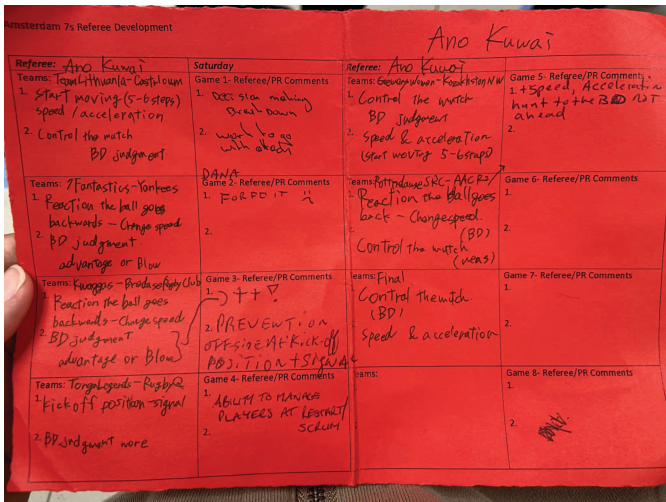 Amsterdam 7s Referee Development
Ano Kuwai
Referee: Ano Kuwai
Saturday
Teams: Team Lithuania - Castricum
1. Start moving (5-6 steps)
speed / acceleration
2. Control the match
BD judgment
Game 1- Referee/PR Comments
1. Decision making
Break Down
2. work to go
with
DANA
Teams: 7 Fantastics - Yankees
1. Reaction the ball goes
backwards - Change speed
2. BD judgment
advantage or Blow
Game 2- Referee/PR Comments
1. FOR DO IT
2.
Teams: Kwaggas - Bredase Rugby Club
1. Reaction the ball goes
backwards - Change speed
2. BD judgment
advantage or Blow
Game 3- Referee/PR Comments
1. ++
2. PREVENTION
OFFSIDE At kick-off
POSITION + SIGNAL
Teams: Tonga Legends - RugbyQ
1. Kick off position - signal
2. BD judgment more
Game 4- Referee/PR Comments
1. ABILITY TO MANAGE
PLAYERS AT RESTART/
SCRUM
2.
Referee: Ano Kuwai
Teams: Women - Kazakhstan NW
1. Control the match
BD judgment
2. Speed & acceleration
(Start moving 5-6 steps)
Game 5- Referee/PR Comments
1. + Speed, Acceleration
hunt to the BD NOT
ahead
2.
Teams: SRC - AACR2
1. Reaction the Ball goes
back - Change speed.
(BD)
2. Control the match
Game 6- Referee/PR Comments
1.
2.
Teams: Final
1. Control the match
(BD)
2. Speed & acceleration
Game 7- Referee/PR Comments
1.
2.
Teams:
Game 8- Referee/PR Comments
1.
2.